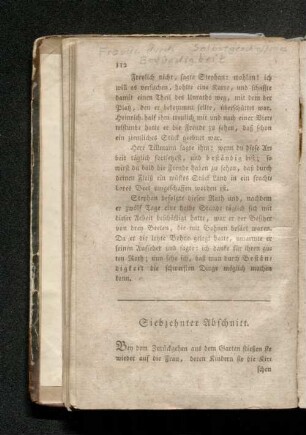 112
Freylich nicht, sagte Stephan: wohlan! ich
will es versuchen, hohlte eine Karre, und führte
damit einen Theil des Unraths weg, mit dem der
Platz, den er bekommen sollte, überschüttet war.
Heinrich half ihm treulich mit und nach einer Vier
telstunde hatte er die Freude zu sehen, daß schon
ein ziemliches Stück geräumt war.
Herr Tillmann sagte ihm: wenn du diese Ar
beit täglich fortsetzest, und beständig bist; so
wirst du bald die Freude haben zu sehen, daß durch
deinen Fleiß ein wüstes Stück Land in ein frucht
bares Beet umgeschaffen worden ist.
Stephan befolgte diesen Rath und, nachdem
er zwölf Tage eine halbe Stunde täglich sich mit
dieser Arbeit beschäftigt hatte, war er der Besitzer
von drey Beeten, die mit Bohnen besäet waren.
Da er die letzte Bohne gelegt hatte, umarmte er
seinen Aufseher und sagte: ich danke für ihren gu
ten Rath; nun sehe ich, daß man durch Bestän
digkeit die schwersten Dinge möglich machen
kann.
Siebzehnter Abschnitt.
Bey dem Zurückgehen aus dem Garten stießen sie
wieder auf die Frau, deren Kindern sie die Kir
schen